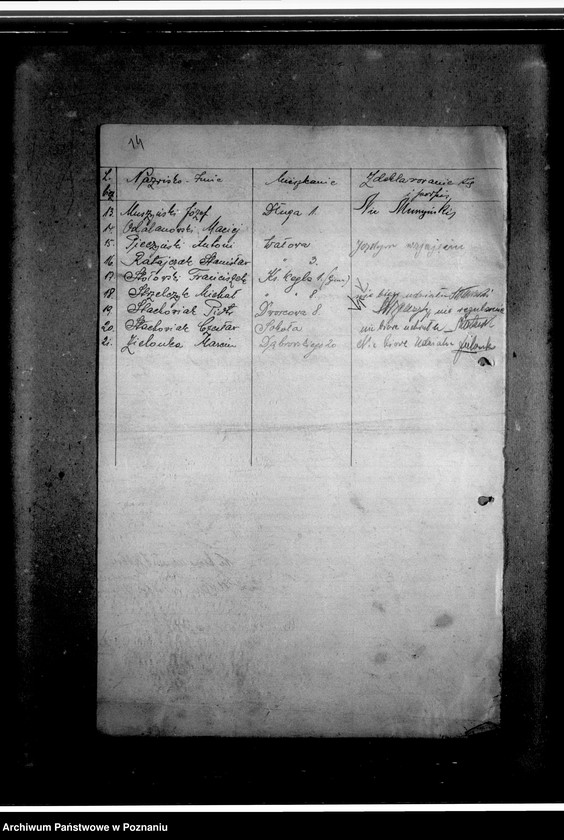 14
L. bż. Nazwisko-Imie Mieszkanie Zdeklarowanie się i podpis
13 Muszyński Józef Długa 1. Nie Muszyński
14 Odolanowski Maciej
15. Pieczyński Antoni Wałowa
16 Ratajczak Stanisław " 3.
17 Franciszek Ks. 1.
18 Strzelczyk Michał " " 8 nie biorę udziału
19. Stachowiak Piotr Dworcowa 8.
20. Stachowiak Czesław Sokoła nie biore udziału
21. Zielonka Marcin Dąbrowskiego 20 Nie biore udziału Zielonka
Archiwum Państwowe w Poznaniu